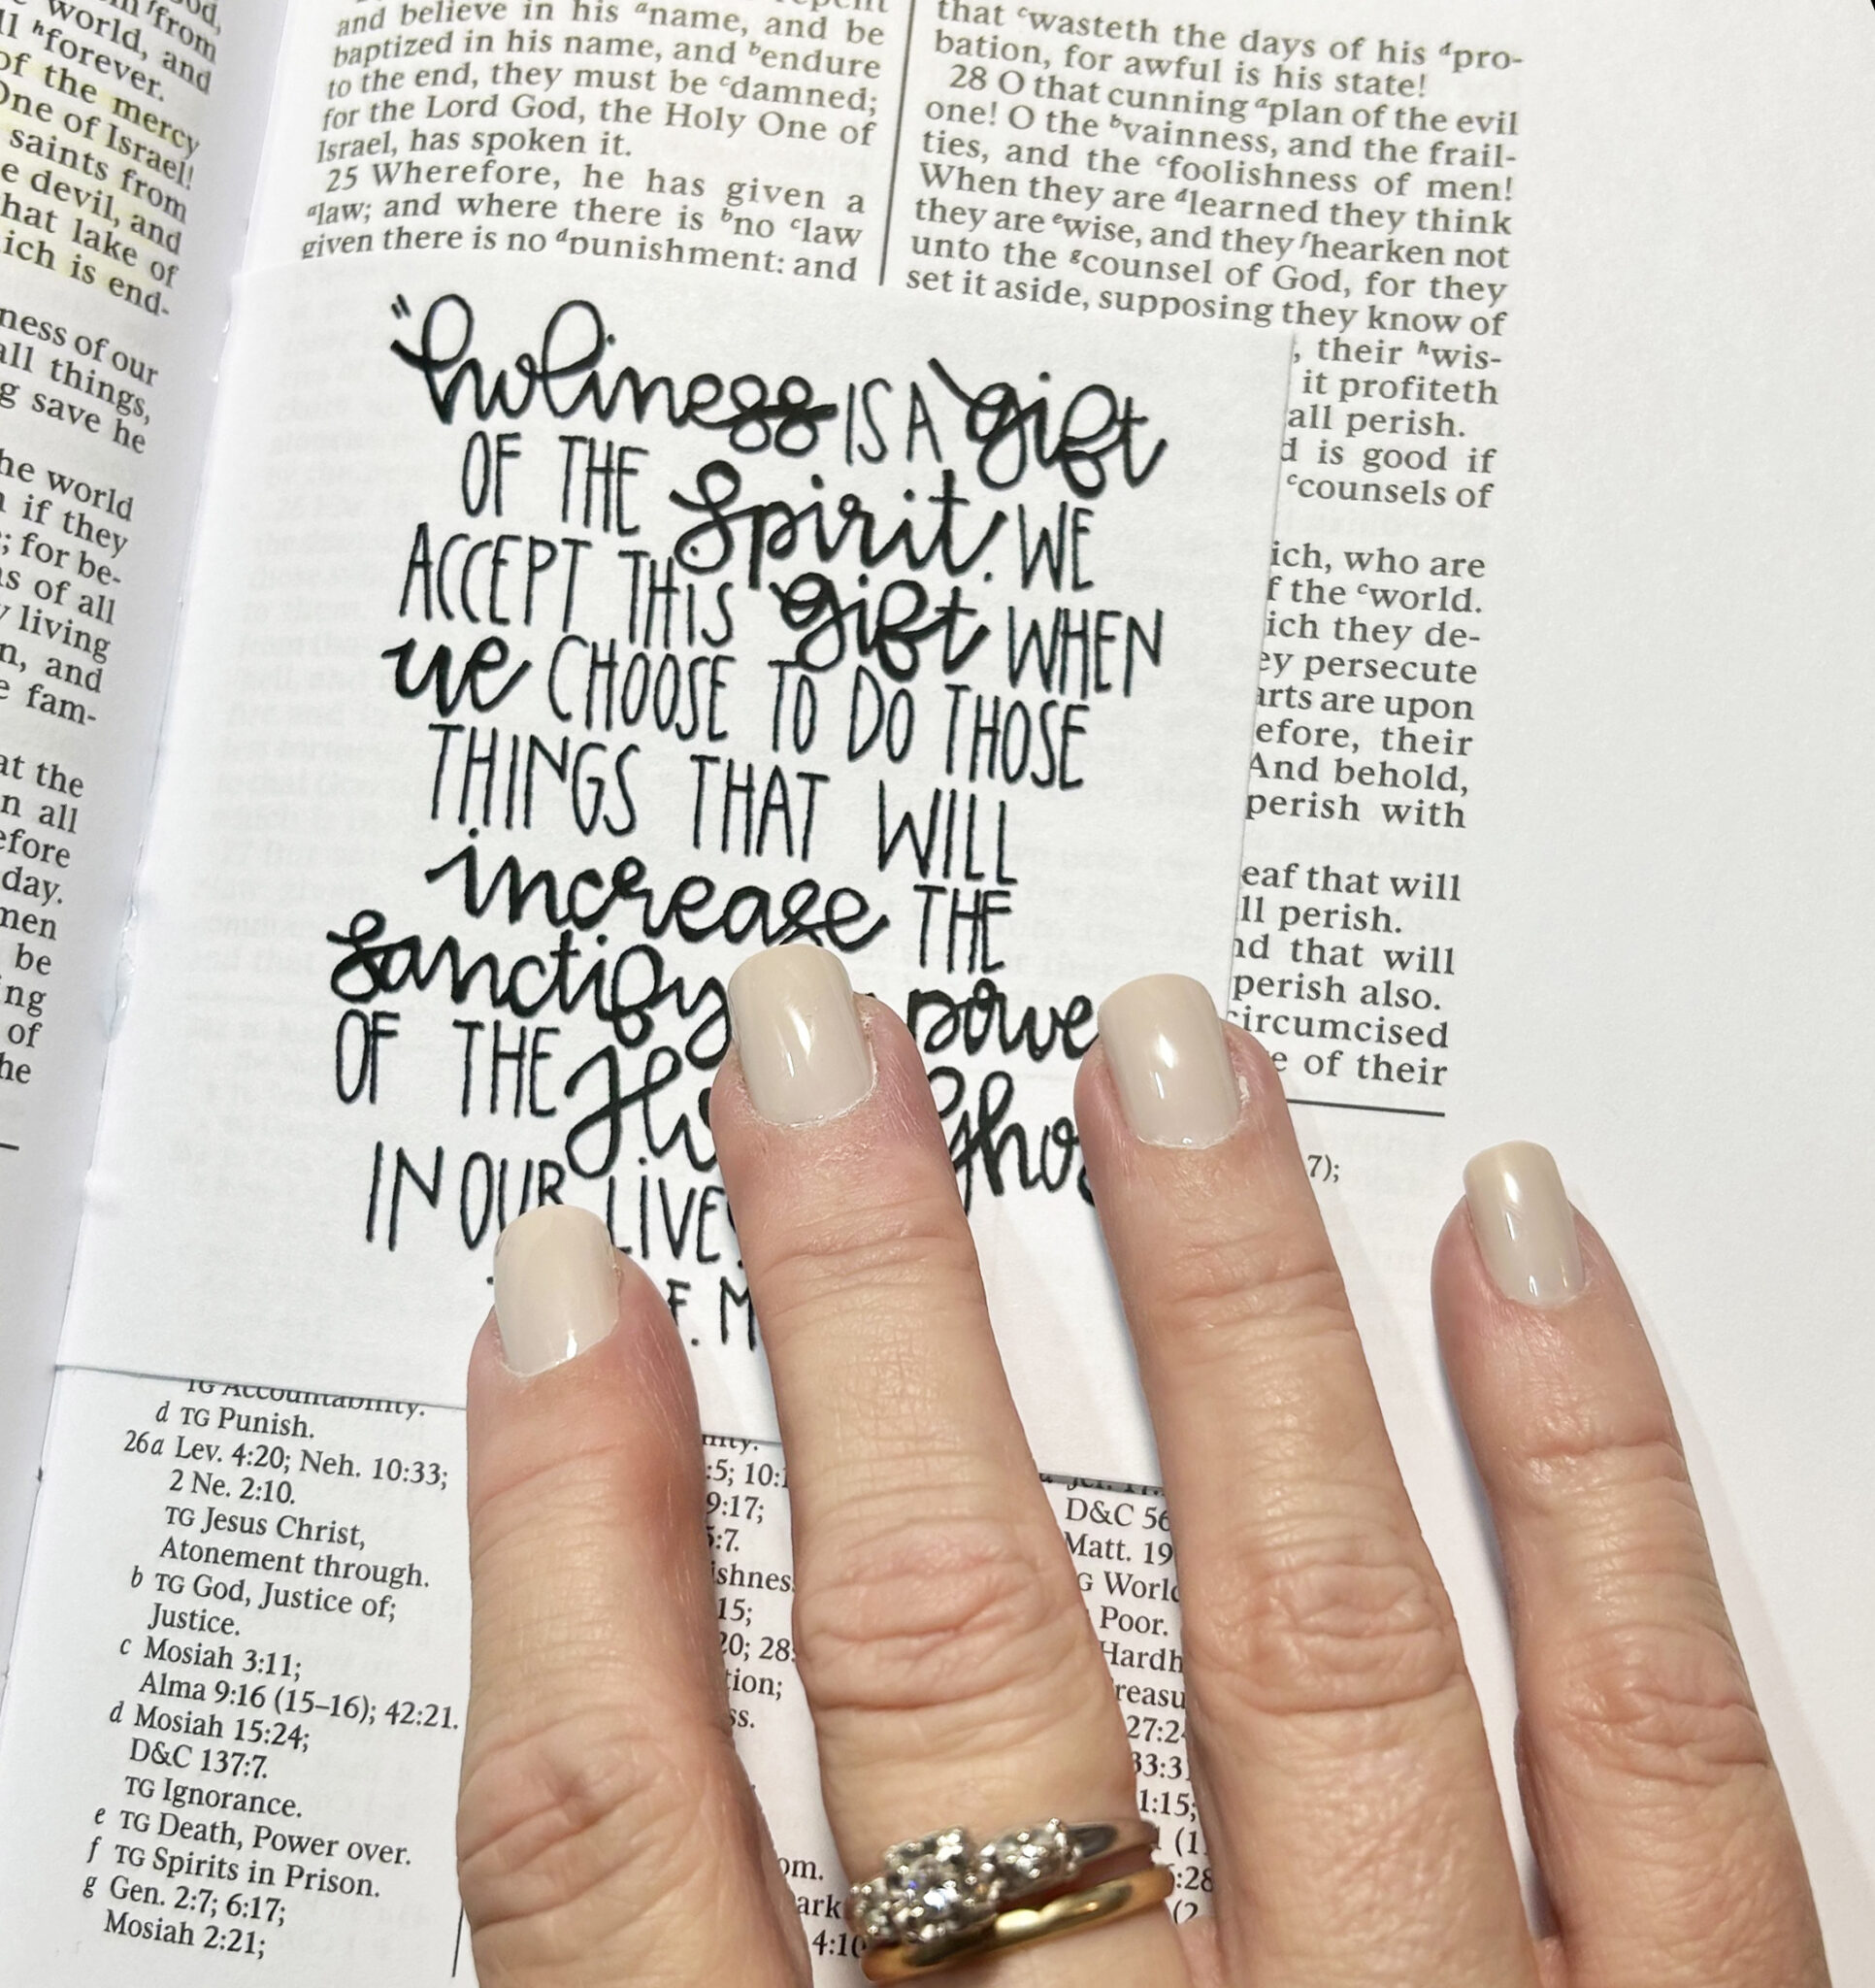 from
world, and
forever.
of the mercy
One of Israel!
saints from
devil, and
that lake of
is end-
ness of our
all things,
save he
the world
if they
; for be-
of all
living
and
fam-
at the
all
day.
men
be
of
and believe in his ᵃname, and be
baptized in his name, and ᵇendure
to the end, they must be ᶜdamned;
for the Lord God, the Holy One of
Israel, has spoken it.
25 Wherefore, he has given a
ᵃlaw; and where there is ᵇno ᶜlaw
given there is no ᵈpunishment: and
that ᶜwasteth the days of his ᵈpro-
bation, for awful is his state!
28 O that cunning ᵃplan of the evil
one! O the ᵇvainness, and the frail-
ties, and the ᶜfoolishness of men!
When they are ᵈlearned they think
they are ᵉwise, and they ᶠhearken not
unto the ᵍcounsel of God, for they
set it aside, supposing they know of
, their ʰwis-
it profiteth
all perish.
is good if
ᶜcounsels of
who are
the ᶜworld.
they de-
persecute
are upon
their
And behold,
perish with
that will
perish.
that will
perish also.
of their
7);
"holiness IS A gift
OF THE Spirit. WE
ACCEPT THIS gift WHEN
we CHOOSE TO DO THOSE
THINGS THAT WILL
increase THE
sanctify powe
OF THE Ho Gho
IN OUR LIVE
F. M
TG Accountability.
d TG Punish.
26a Lev. 4:20; Neh. 10:33;
2 Ne. 2:10.
TG Jesus Christ,
Atonement through.
b TG God, Justice of;
Justice.
c Mosiah 3:11;
Alma 9:16 (15–16); 42:21.
d Mosiah 15:24;
D&C 137:7.
TG Ignorance.
e TG Death, Power over.
f TG Spirits in Prison.
g Gen. 2:7; 6:17;
Mosiah 2:21;
:5; 10:
9:17;
:7.
15;
20; 28:
tion;
ss.
om.
ark
4:10
D&C 56
Matt. 19
Worl
Poor.
Hardh
reasu
27:2
33:3
1:15;
(1
:28
(2